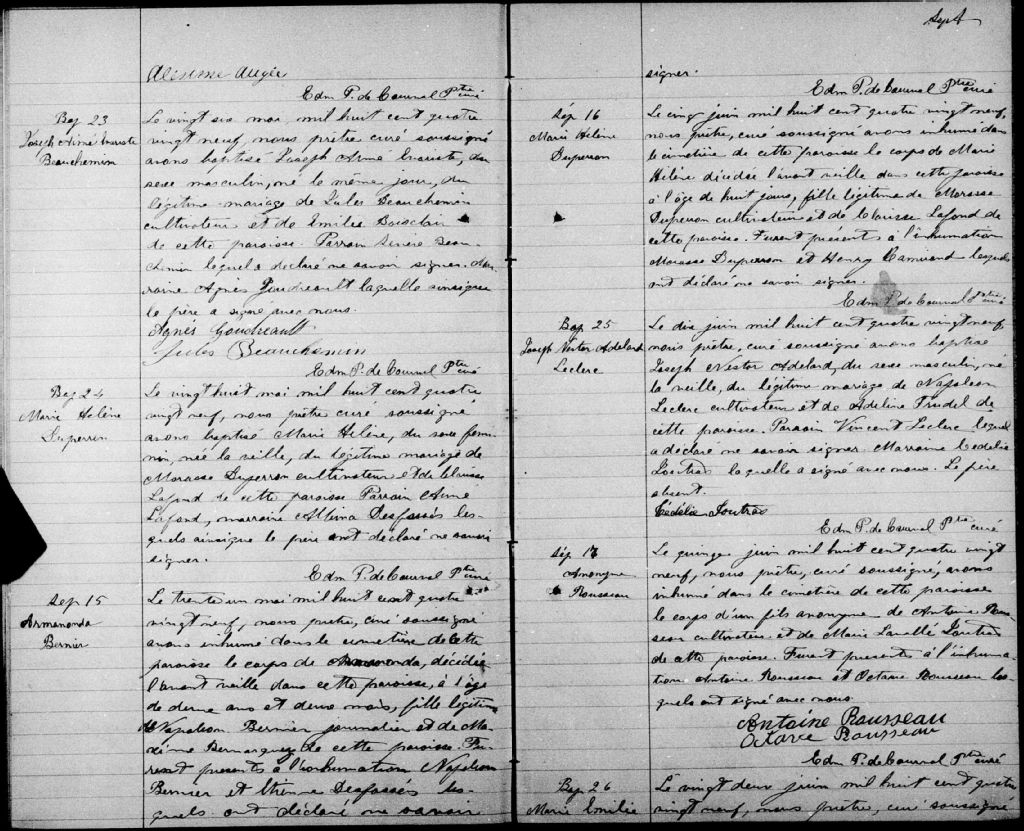 Alexime Augée
Edm P. de Courval Ptre curé
Bap 23
Joseph Aimé Evariste
Beauchemin
Le vingt six mai mil huit cent quatre
vingt neuf, nous prêtre, curé soussigné
avons baptisé Joseph Aimé Evariste, du
sexe masculin, né le même jour, du
légitime mariage de Jules Beauchemin
cultivateur et de Emilie Boisclair
de cette paroisse. Parrain Beau-
chemin lequel a déclaré ne savoir signer. Mar-
raine Agnès Goudreault laquelle ainsi que
le père a signé avec nous.
Agnès Goudreault
Jules Beauchemin
Edm P. de Courval Ptre curé
Bap 24
Marie Hélène
Duperron
Le vingt huit mai mil huit cent quatre
vingt neuf, nous prêtre curé soussigné
avons baptisé Marie Hélène, du sexe fémi-
nin, née la veille, du légitime mariage de
Morasse Duperron cultivateur et de Clarisse
Lafond de cette paroisse Parrain Aimé
Lafond, marraine Desfossés les-
quels ainsi que le père ont déclaré ne savoir
signer.
Edm P. de Courval Ptre curé
Sep 15
Armananda
Bernier
Le trente un mai mil huit cent quatre
vingt neuf, nous prêtre, curé soussigné
avons inhumé dans le cimetière de cette
paroisse le corps de décédée
l'avant veille dans cette paroisse, à l'âge
de deux ans et deux mois, fille légitime
de Napoléon Bernier journalier et de Ma-
de cette paroisse. Fu-
rent présents à l'inhumation Napoléon
Bernier et Etienne Desfossés les-
quels ont déclaré ne savoir
Sept
signer.
Edm P. de Courval Ptre curé
Sép 16
Marie Hélène
Duperron
Le cinq juin mil huit cent quatre vingt neuf,
nous prêtre, curé soussigné avons inhumé dans
le cimetière de cette paroisse le corps de Marie
Hélène décédée l'avant veille dans cette paroisse
à l'âge de huit jours, fille légitime de Morasse
Duperron cultivateur et de Clarisse Lafond de
cette paroisse. Furent présents à l'inhumation
Morasse Duperron et Henry Camirand lesquels
ont déclaré ne savoir signer.
Edm P. de Courval Ptre curé
Bap 25
Joseph Nestor Adelard
Leclerc
Le dix juin mil huit cent quatre vingt neuf,
nous prêtre, curé soussigné avons baptisé
Joseph Nestor Adelard, du sexe masculin, né
la veille, du légitime mariage de Napoléon
Leclerc cultivateur et de Adeline Trudel de
cette paroisse. Parrain Vincent Leclerc lequel
a déclaré ne savoir signer. Marraine Cedelie
Joutras laquelle a signé avec nous. Le père
absent.
Cédélia Joutras
Edm P. de Courval Ptre curé
Sép 17
Anonyme
Rousseau
Le quinze juin mil huit cent quatre vingt
neuf, nous prêtre, curé soussigné, avons
inhumé dans le cimetière de cette paroisse
le corps d'un fils anonyme de Antoine Rous-
seau cultivateur et de Marie Lavallé Joutras
de cette paroisse. Furent présents à l'inhuma-
tion Antoine Rousseau et Octave Rousseau les-
quels ont signé avec nous
Antoine Rousseau
Octave Rousseau
Edm P. de Courval Ptre curé
Bap 26
Marie Emilie
Le vingt deux juin mil huit cent quatre
vingt neuf, nous prêtre, curé soussigné